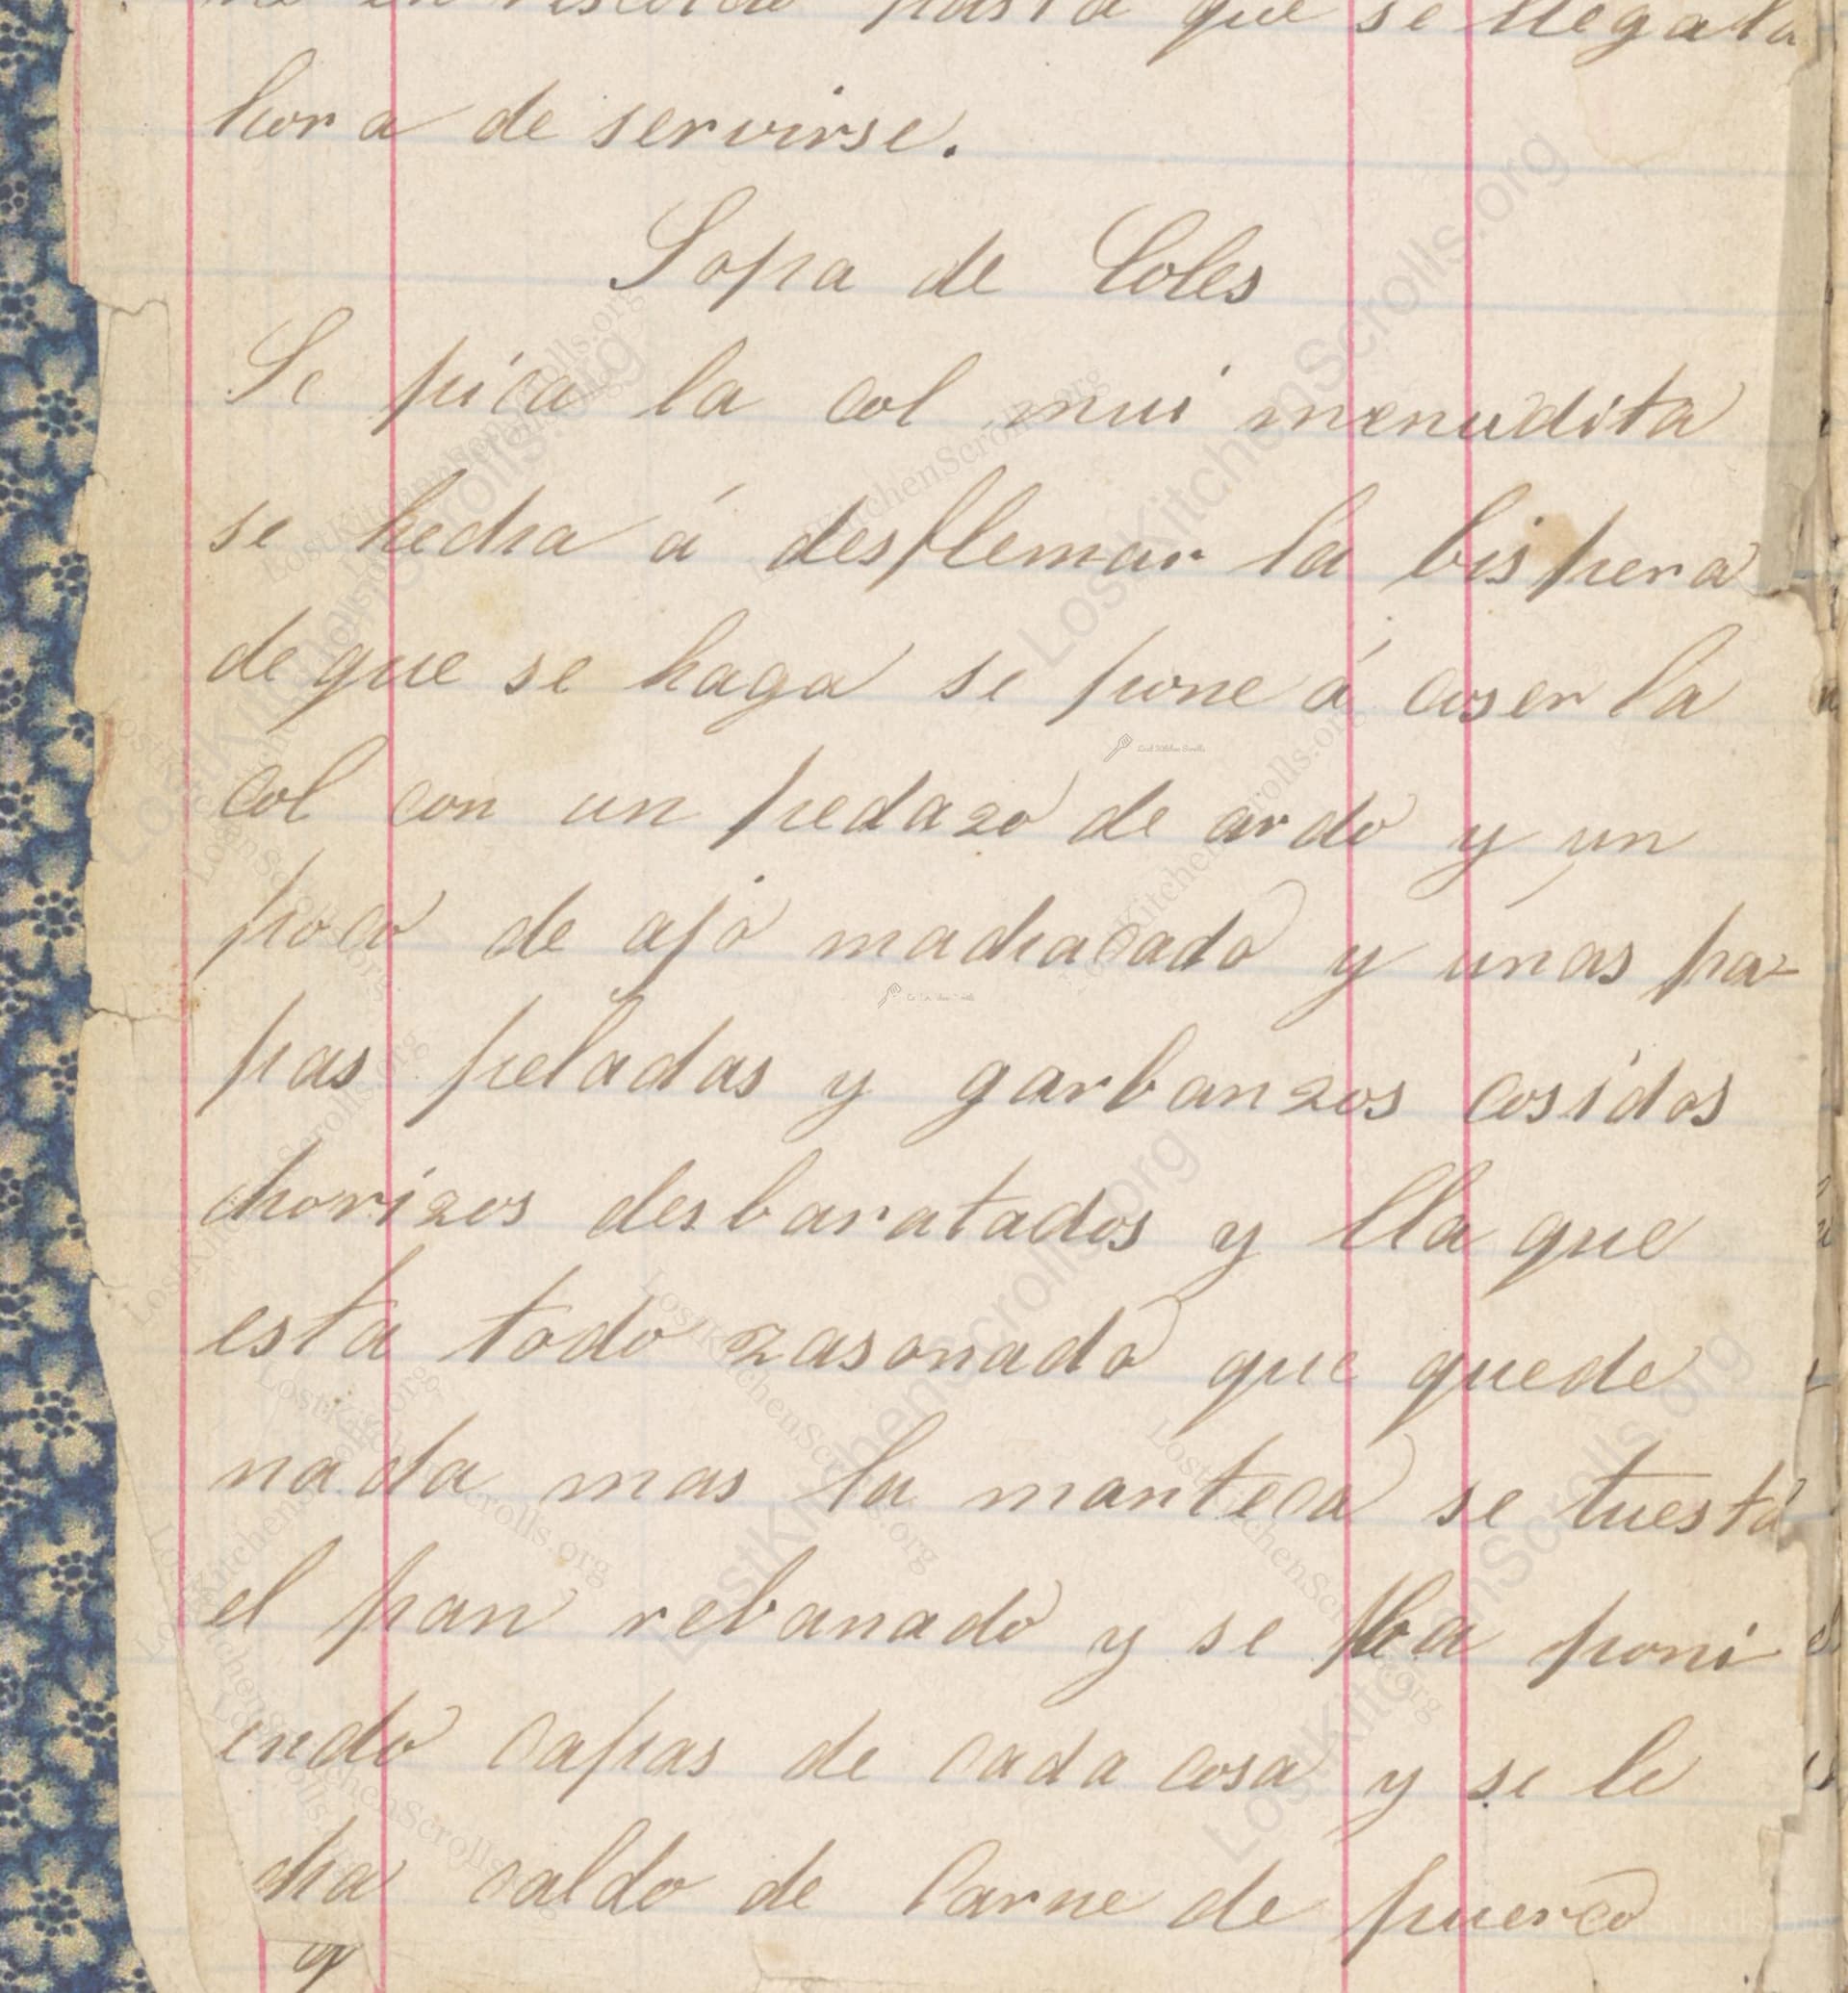 que se llega la
hora de servirse.
Sopa de Coles
Se pica la col mui menudita
se hecha á desflemar la bispera
de que se haga se pone á coser la
col con un pedazo de ardo y un
poco de ajo machacado y unas pa-
pas peladas y garbanzos cosidos
chorizos desbaratados y lla que
esta todo zasonado que quede
nada mas la manteca se tuesta
el pan rebanado y se ba poni
endo capas de cada cosa y se le
cha caldo de Carne de puerco
y